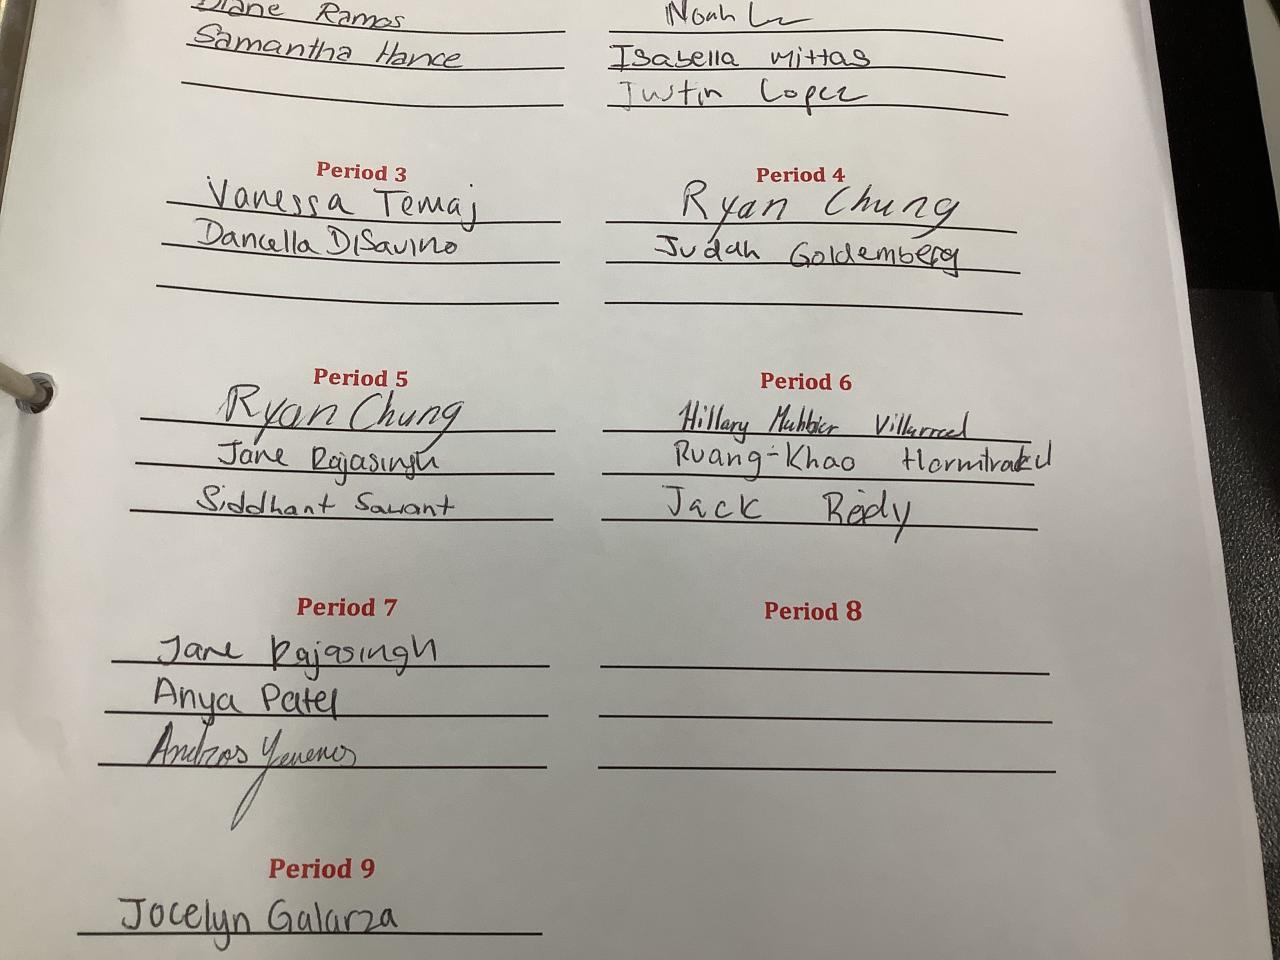 Diane Ramos
Samantha Hance
Noah
Isabella Mittas
Justin Lopez
Period 3
Vanessa Temaj
Dancella DiSavino
Period 4
Ryan Chung
Judah Goldemberg
Period 5
Ryan Chung
Jane Rajasingh
Siddhant Sawant
Period 6
Hillary Villarreal
Ruang-Khao
Jack Reidy
Period 7
Jane Rajasingh
Anya Patel
Andros
Period 8
Period 9
Jocelyn Galarza